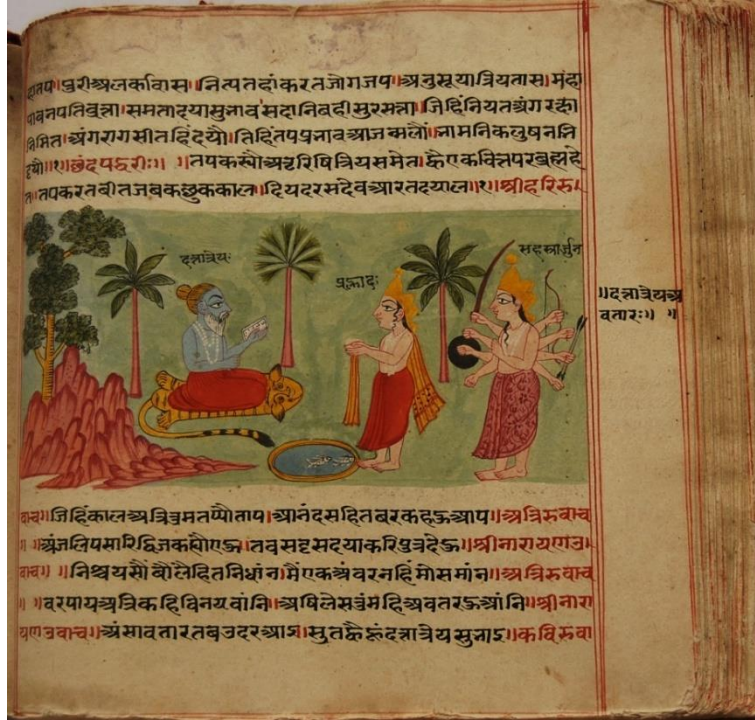 हातप॥पुरीअलकविास॥नित्पतहांकरतजोगजप॥अनुसूयात्रियतास॥महा
पावनपतिव्रत्ता॥समतादयासुनाव॑सदानिबहीसुरसत्रा॥जिहिंनियतअंगरक्षा
निमित॥अंगरागसीतहिंदयौ॥तिहिंतपप्रनावआजन्मलौं॥नामनिकलुषनन्नि
हृयौ॥१॥छंदपद्धरीः॥ ॥तपकस्यौअत्ररिषित्रियसमेत॥ह्वैएकचित्तपरब्रह्महे
त॥तपकरतबीतजबकछुककाल॥दियदरसदेवआरतदयाल॥१॥श्रीहरिरु
दत्तात्रेयः
प्रह्लादः
सहस्त्रार्जुन
॥दत्तात्रेयअ
वतारः॥ ॥
वाच॥जिहिंकालअत्रिव्रुमतप्पौताप॥आनंदसहितबरकहऊआप॥अत्रिरुवाच
॥ ॥अंजलिपसारिद्विजकस्यौएऊ॥तवसदृसदयाकरिपुत्रदेऊ॥श्रीनारायणउ
वाच॥ ॥निश्चयसौंबोंलेहितनिधांन॥मैंएकअंवरनहिंमोसमांन॥अत्रिरुवाच
॥ ॥वरपायअत्रिकहिविनयवांनि॥अषिलेसत्रंमहिअवतरऊआंनि॥श्रीनारा
यणउवाच॥अंसावतारतबउदरआऽ॥सुतह्वैहूंदत्तात्रेयसुनाऽ॥कविरुवा